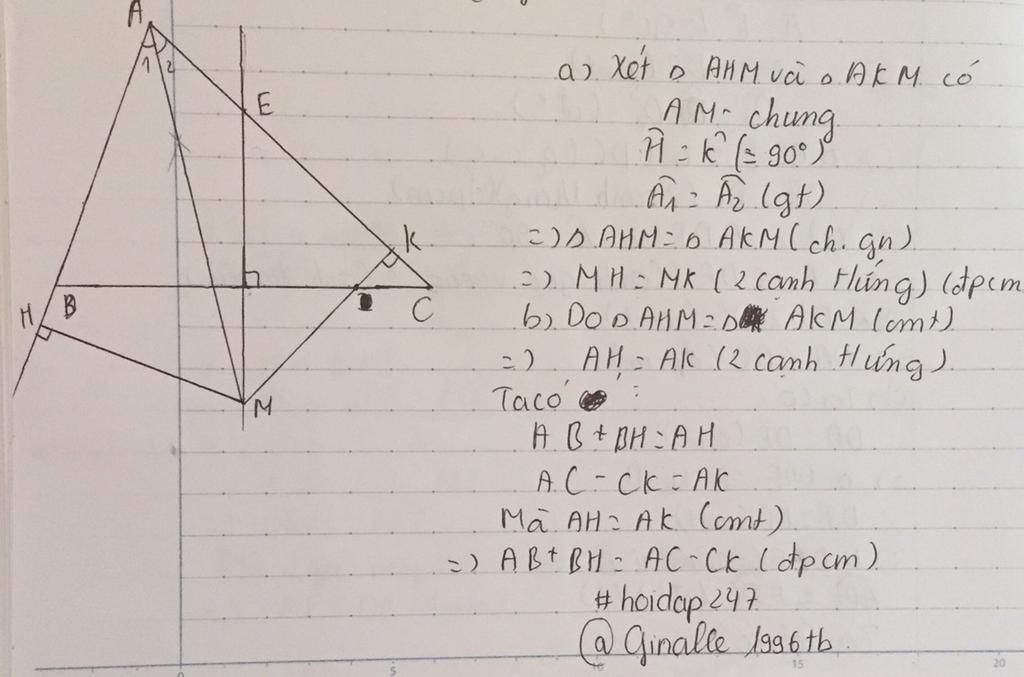 A
1 2
E
K
H B C
M
a) Xét Δ AHM và Δ AKM có
AM - chung
Ĥ = K̂ (= 90°)
Â1 = Â2 (gt)
=) Δ AHM = Δ AKM (ch. gn)
=) MH = MK (2 cạnh tứng) (đpcm
b) Do Δ AHM = Δ AKM (cmt)
=) AH = AK (2 cạnh tứng)
Ta có :
AB + BH = AH
AC - CK = AK
Mà AH = AK (cmt)
=) AB + BH = AC - CK (đpcm)
#hoidap247
@Ginalle 1996tb.
0 5 10 15 20